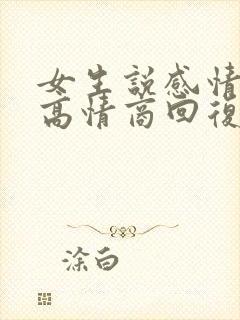 女生説感情
高情商回復
涂白